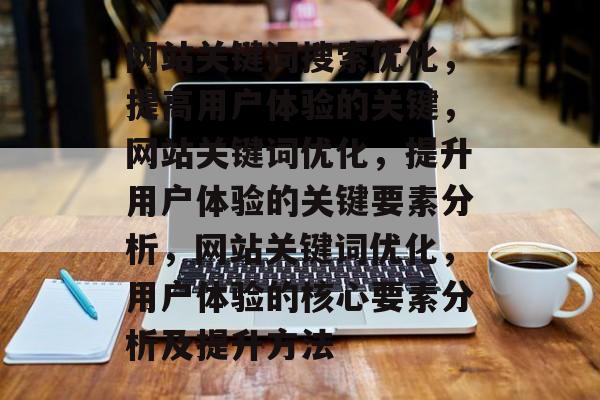 网站关键词搜索优化，
提高用户体验的关键，
网站关键词优化，提升
用户体验的关键要素分
析，网站关键词优化，
用户体验的核心要素分
析及提升方法